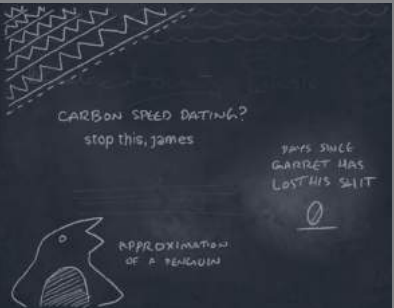 CARBON SPEED DATING?
stop this, james
DAYS SINCE
GARRET HAS
LOST HIS SHIT
0
APPROXIMATION
OF A PENGUIN